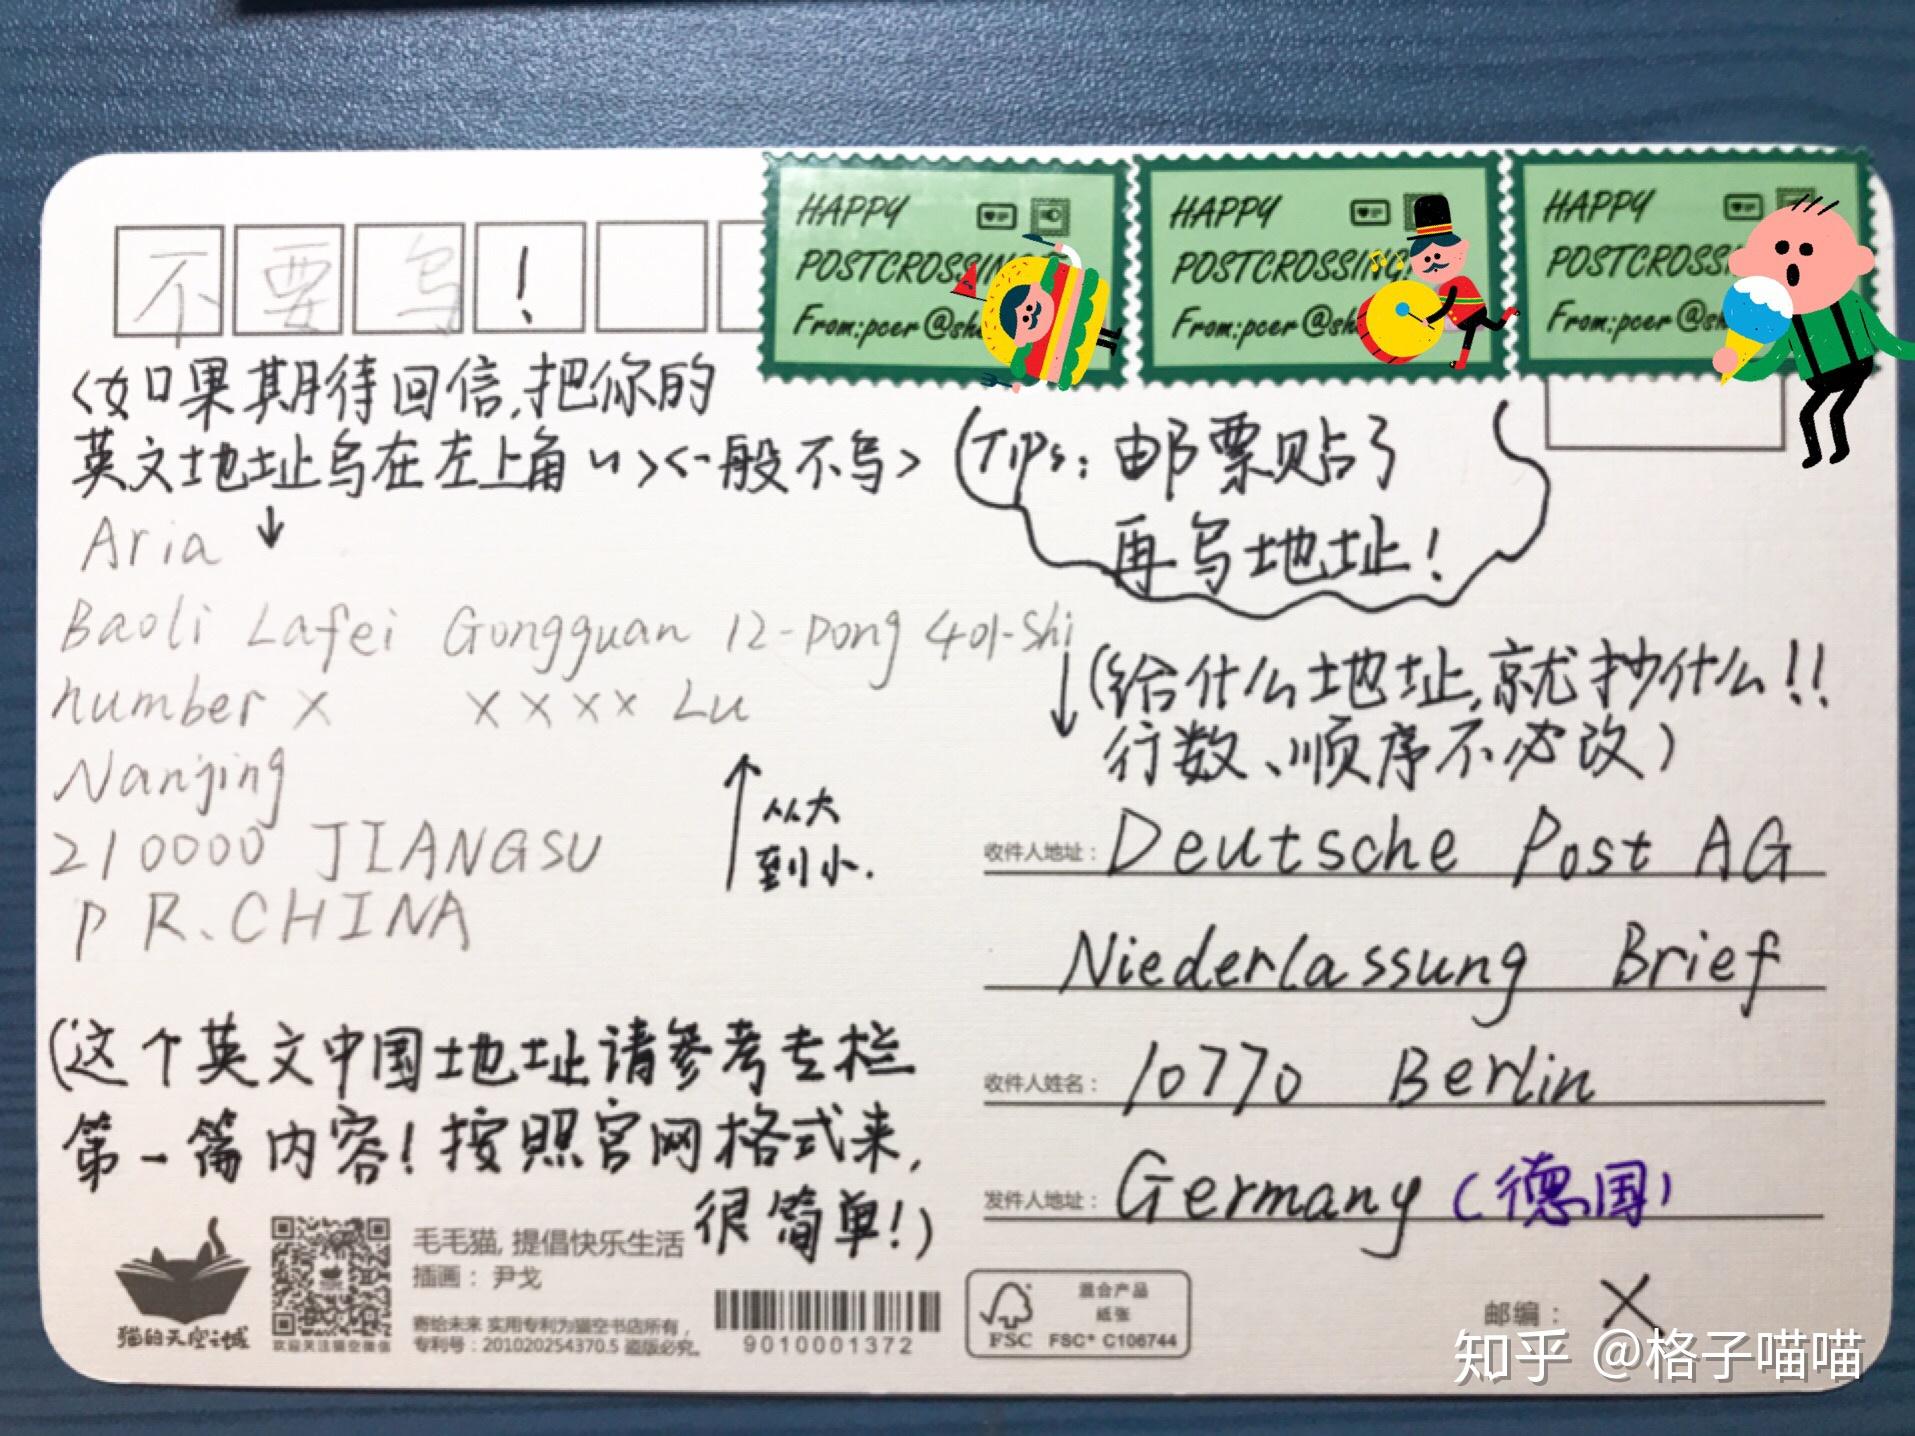 不要写！
HAPPY
POSTCROSSING
From:pcer @sh
HAPPY
POSTCROSSING
From:pcer @sh
HAPPY
POSTCROSS
From:pcer @s
<如果期待回信,把你的
英文地址写在左上角~><一般不写>
Tips: 邮票贴了
再写地址!
Aria
Baoli Lafei Gongguan 12-Dong 401-Shi
number x xxxx Lu
Nanjing
210000 JIANGSU
P R.CHINA
从大
到小.
(给什么地址,就抄什么!!
行数、顺序不必改)
收件人地址: Deutsche Post AG
Niederlassung Brief
收件人姓名: 10770 Berlin
发件人地址: Germany (德国)
邮编: X
(这个英文中国地址请参考专栏
第一篇内容!按照官网格式来,
很简单!)
猫的天空之城
欢迎关注猫空微信
毛毛猫, 提倡快乐生活
插画: 尹戈
寄给未来 实用专利为猫空书店所有,
专利号: 201020254370.5 盗版必究。
9010001372
FSC
混合产品
纸张
FSC® C106744
知乎 @格子喵喵